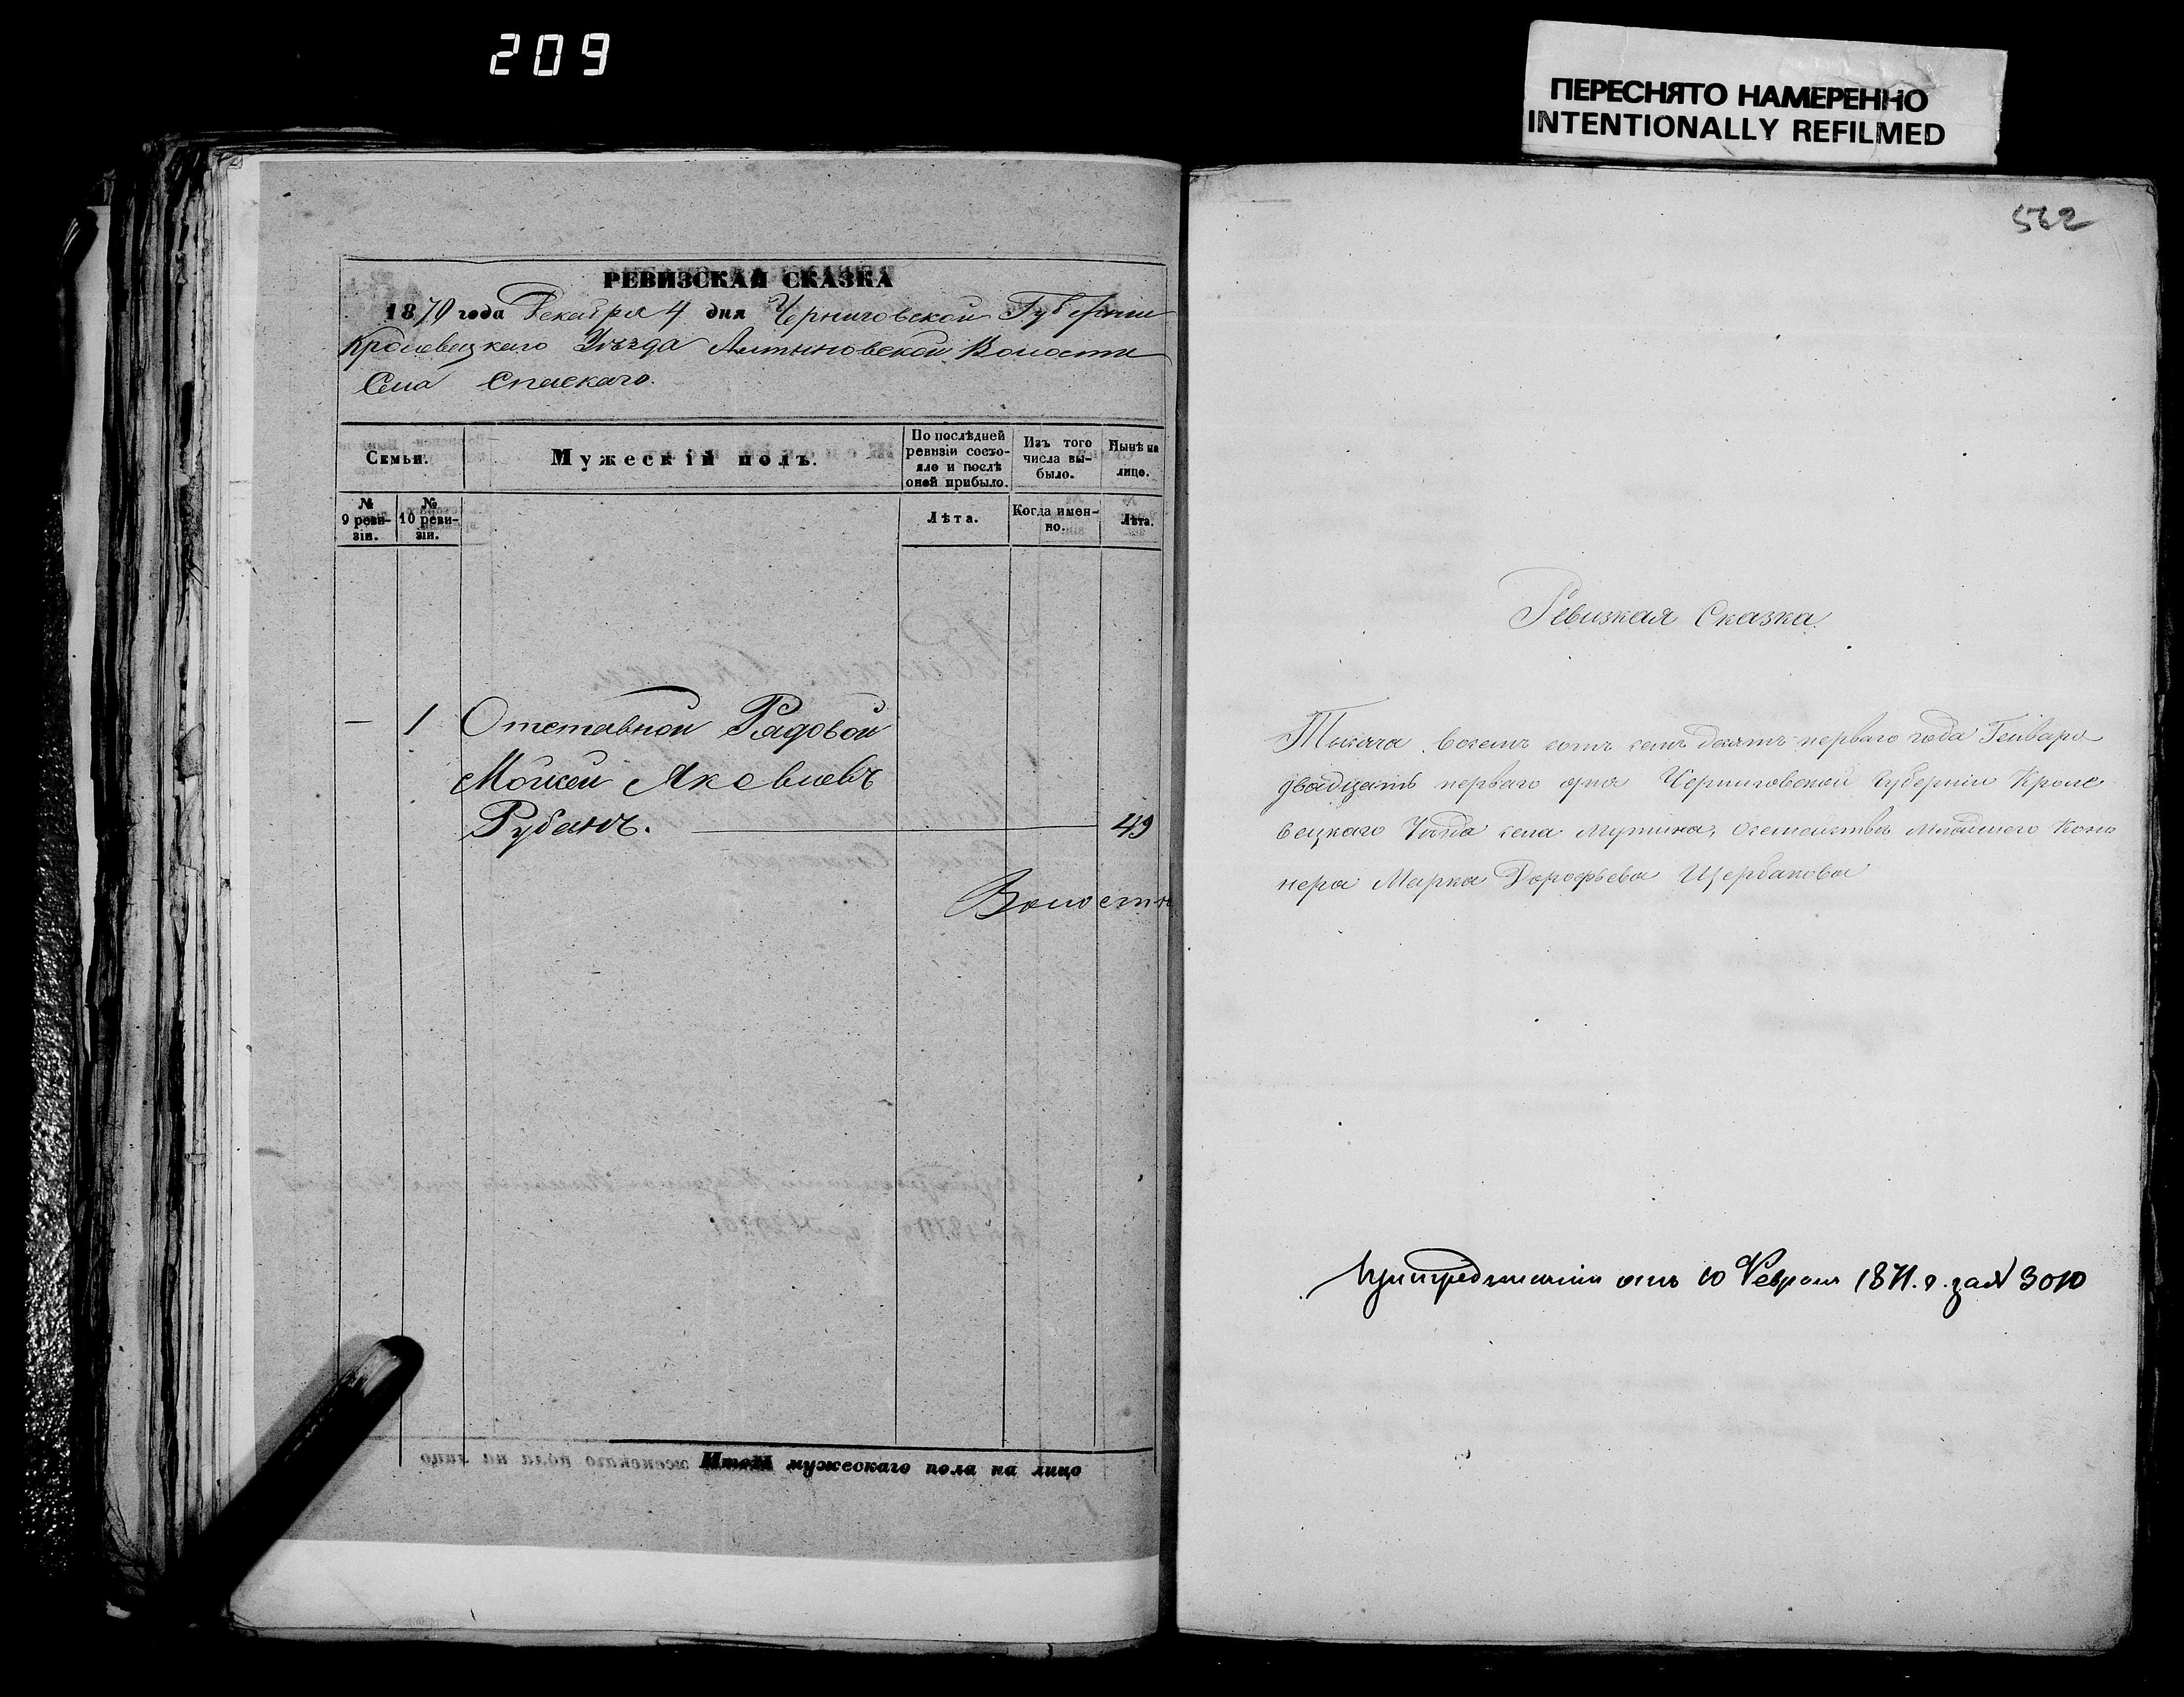 209
ПЕРЕСНЯТО НАМЕРЕННО
INTENTIONALLY REFILMED
РЕВИЗСКАЯ СКАЗКА
1870 года Декабря 4 дня Черниговской Губернии
Кролевецкаго Уѣзда Алтыновской Волости
Села Спаскаго.
Семьи.
Мужескій полъ.
По послѣдней
ревизіи состо-
яло и послѣ
оной прибыло.
Изъ того
числа вы-
было.
Нынѣ на
лицо.
№
9 реви-
зіи.
№
10 реви-
зіи.
Лѣта.
Когда имен-
но.
Лѣта.
— 1 Отставной Рядовой
Мойсей Яковлевъ
Рубанъ. 49
Волостн
Итого мужескаго пола на лицо
562
Ревизкая Сказка
Тысяча восемь сотъ семь десятъ перваго года Генваря
двадцать перваго дня Черниговской губерніи Кроле
вецкаго Уѣзда села Мутина, Семейства Младшего Коно
нера Марка Дорофѣева Щербакова
При предписаніи отъ 10 Февраля 1871. г. за № 3010